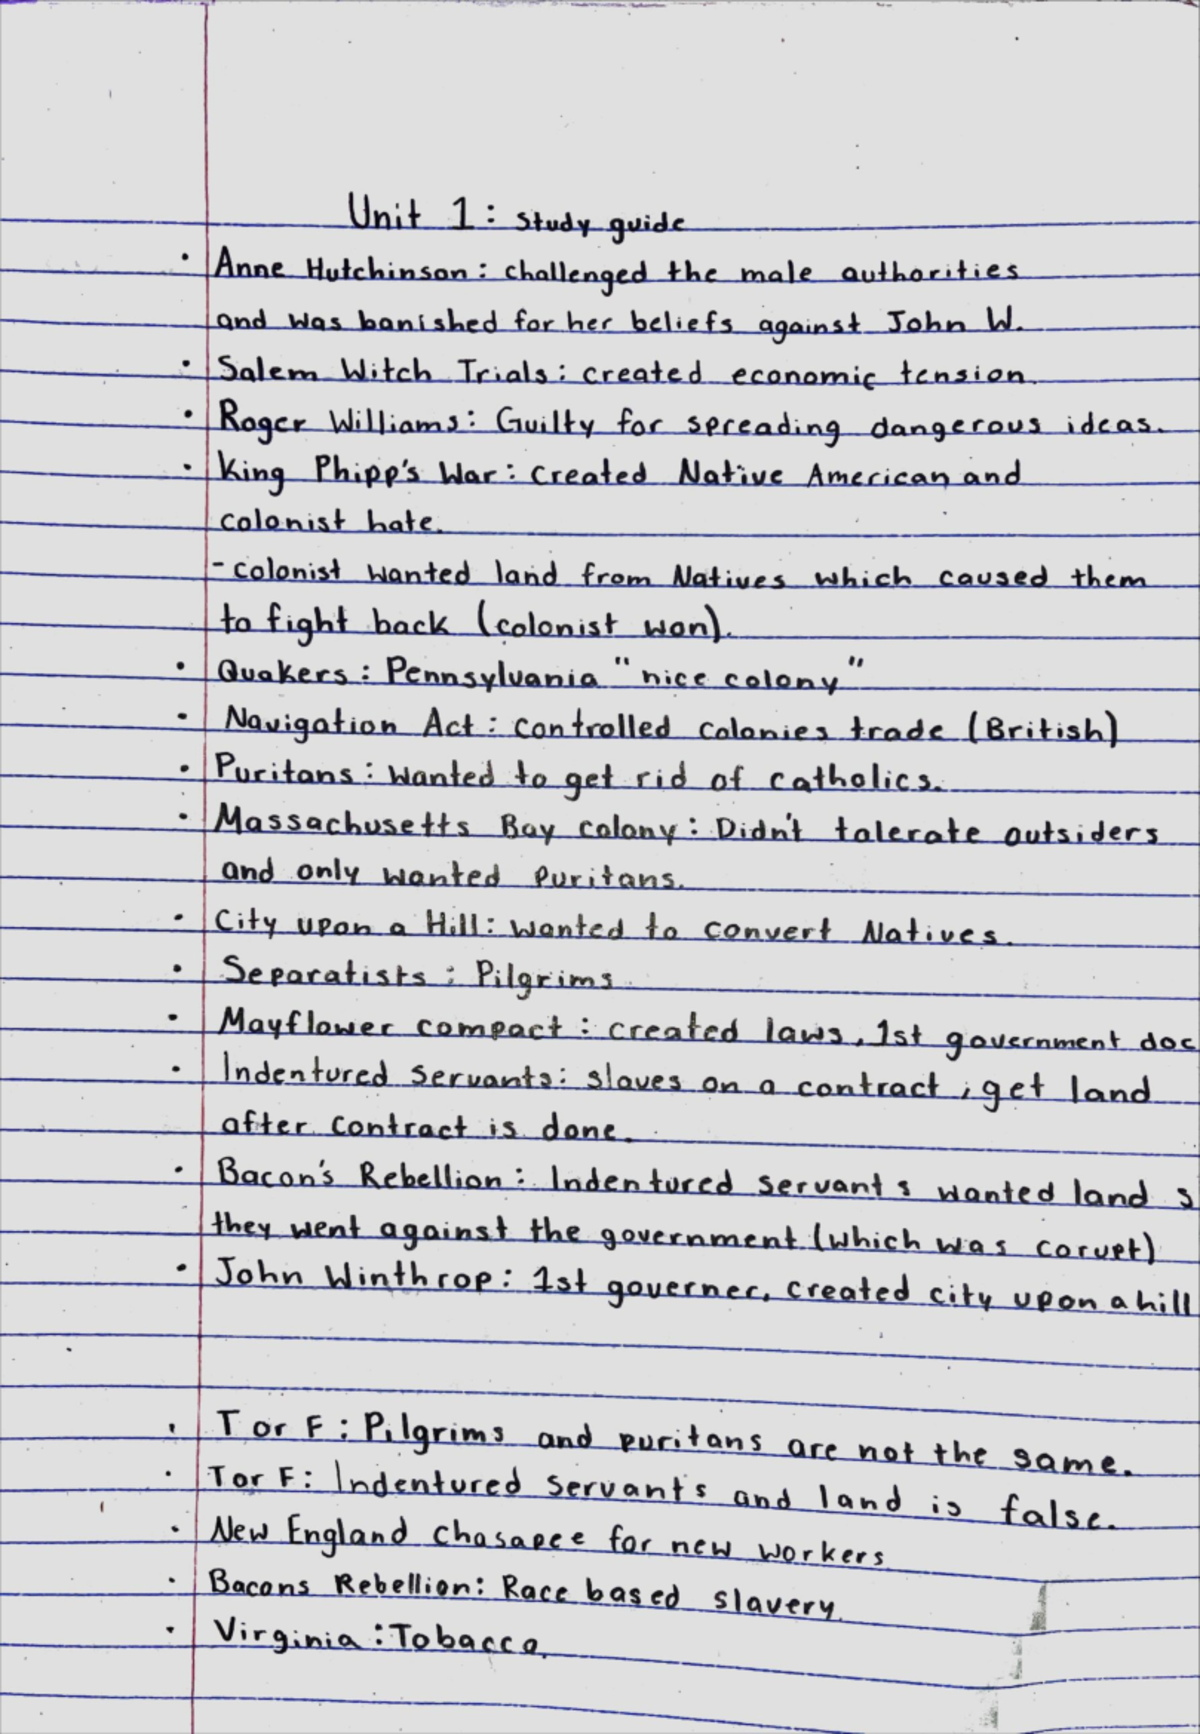 Unit 1: study guide
• Anne Hutchinson: challenged the male authorities
and was banished for her beliefs against John W.
• Salem Witch Trials: created economic tension.
• Roger Williams: Guilty for spreading dangerous ideas.
• King Phipp's War: created Native American and
colonist hate.
- colonist wanted land from Natives which caused them
to fight back (colonist won).
• Quakers: Pennsylvania "nice colony"
• Navigation Act: controlled colonies trade (British)
• Puritans: wanted to get rid of catholics.
• Massachusetts Bay colony: Didn't talerate outsiders
and only wanted puritans.
• City upon a Hill: wanted to convert Natives.
• Separatists: Pilgrims
• Mayflower compact: created laws, 1st government doc
• Indentured servants: slaves on a contract, get land
after contract is done.
• Bacon's Rebellion: Indentured servants wanted land s
they went against the government (which was corupt)
• John Winthrop: 1st governer, created city upon a hill
• T or F: Pilgrims and puritans are not the same.
• T or F: Indentured servants and land is false.
• New England chasapee for new workers
• Bacons Rebellion: Race based slavery.
• Virginia: Tobacco.